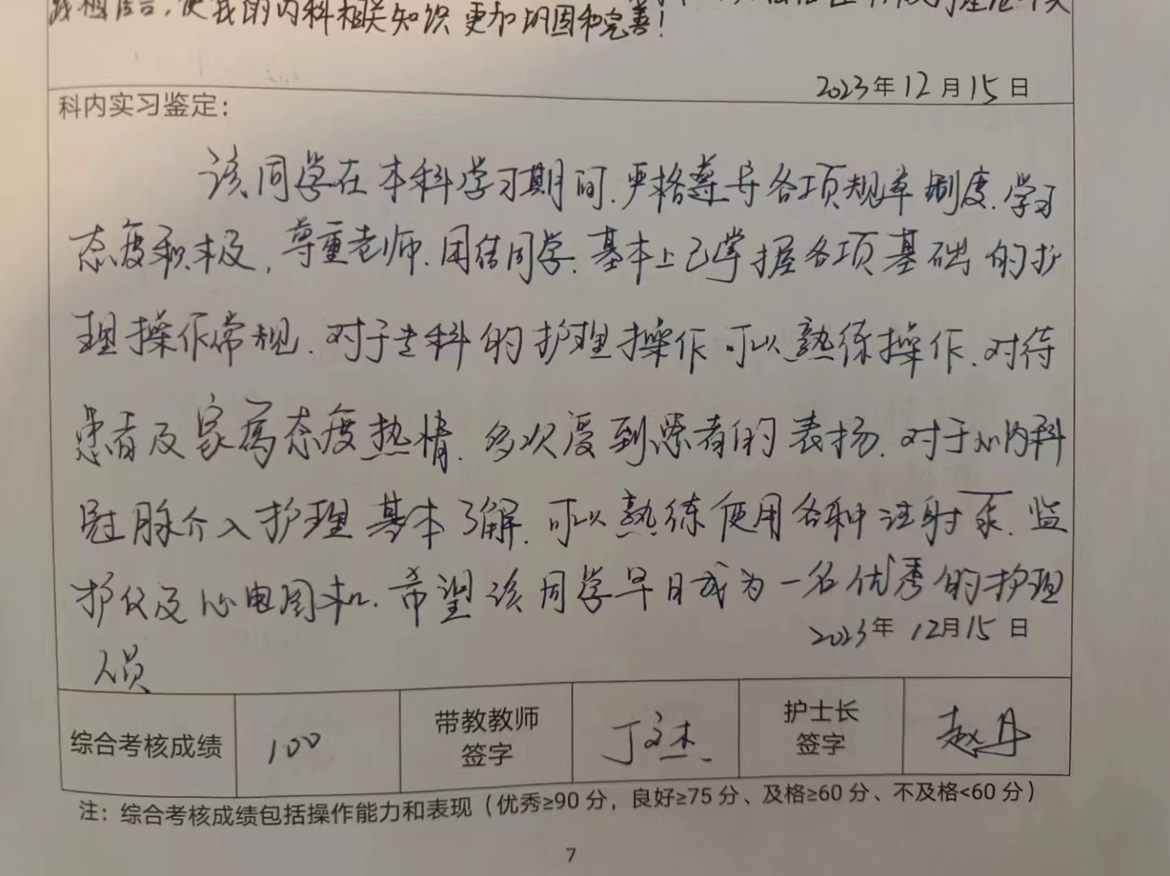 我的内科相关知识更加巩固和完善!
2023年12月15日
科内实习鉴定:
该同学在本科学习期间.严格遵导各项规章制度.学习
态度积极,尊重老师.团结同学.基本上已掌握各项基础的护
理操作常规.对于专科的护理操作可以熟练操作.对待
患者及家属态度热情.多次受到患者的表扬.对于心内科
冠脉介入护理基本了解.可以熟练使用各种注射泵.监
护仪及心电图机.希望该同学早日成为一名优秀的护理
2023年12月15日
人员
综合考核成绩 100 带教教师签字 丁文杰 护士长签字 赵丹
注:综合考核成绩包括操作能力和表现(优秀≥90分,良好≥75分、及格≥60分、不及格<60分)
7